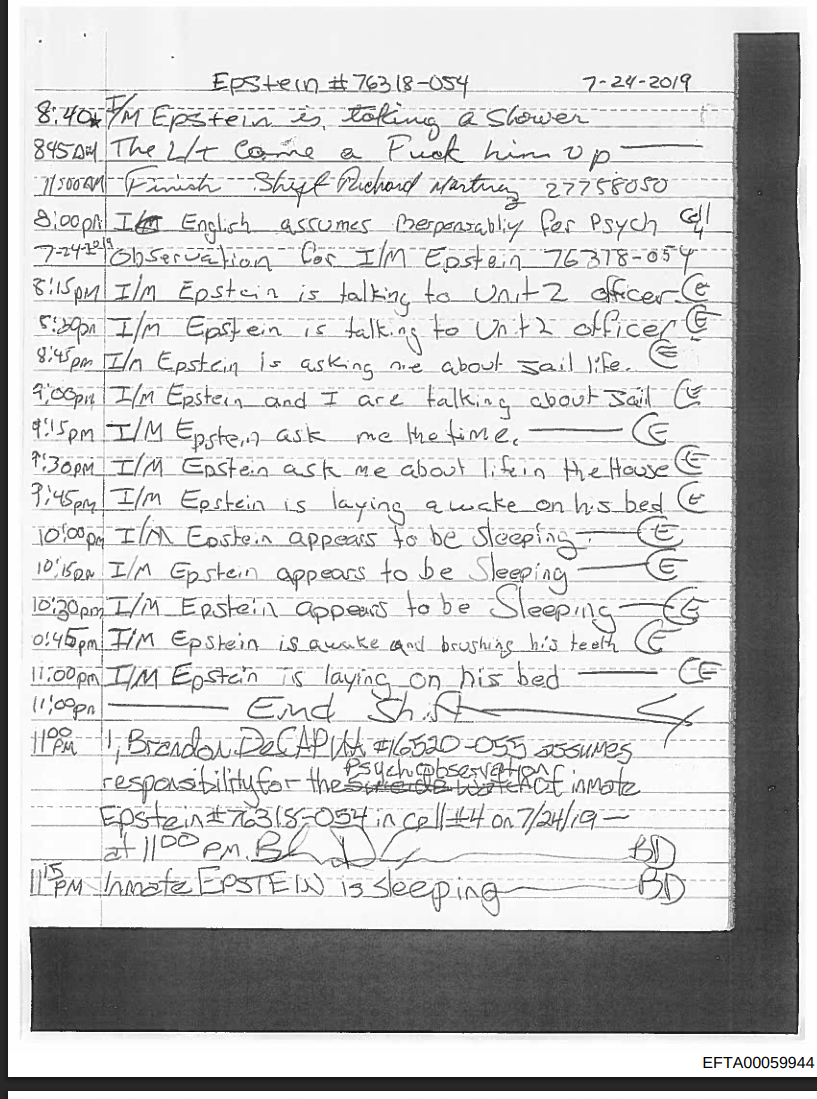 Epstein # 76318-054 7-24-2019
8:40 I/M Epstein is taking a shower
845AM The L/t Came a Fuck him up
11:00AM Finish Shift Richard Martinez 27758050
8:00pm I English assumes Responsabliy for Psych Cell 4
7-24-2019 Observation for I/M Epstein 76318-054
8:15pm I/M Epstein is talking to Unit 2 officer CE
8:30pm I/M Epstein is talking to Unit 2 officer CE
8:45pm I/m Epstein is asking me about Jail life. CE
9:00pm I/M Epstein and I are talking about Jail CE
9:15pm I/M Epstein ask me the time. CE
9:30pm I/M Epstein ask me about life in the House CE
9:45pm I/M Epstein is laying awake on his bed CE
10:00pm I/M Epstein appears to be Sleeping CE
10:15pm I/M Epstein appears to be Sleeping CE
10:30pm I/M Epstein appears to be Sleeping CE
0:45pm I/M Epstein is awake and brushing his teeth CE
11:00pm I/M Epstein is laying on his bed CE
11:00pm End Shift
11 00 PM I, Brandon DeCAPUA #16520-055 assumes
responsibility for the psych observation of inmate
Epstein #76318-054 in cell #4 on 7/24/19 —
at 11 00 PM. BD
11 15 PM Inmate EPSTEIN is sleeping BD
EFTA00059944